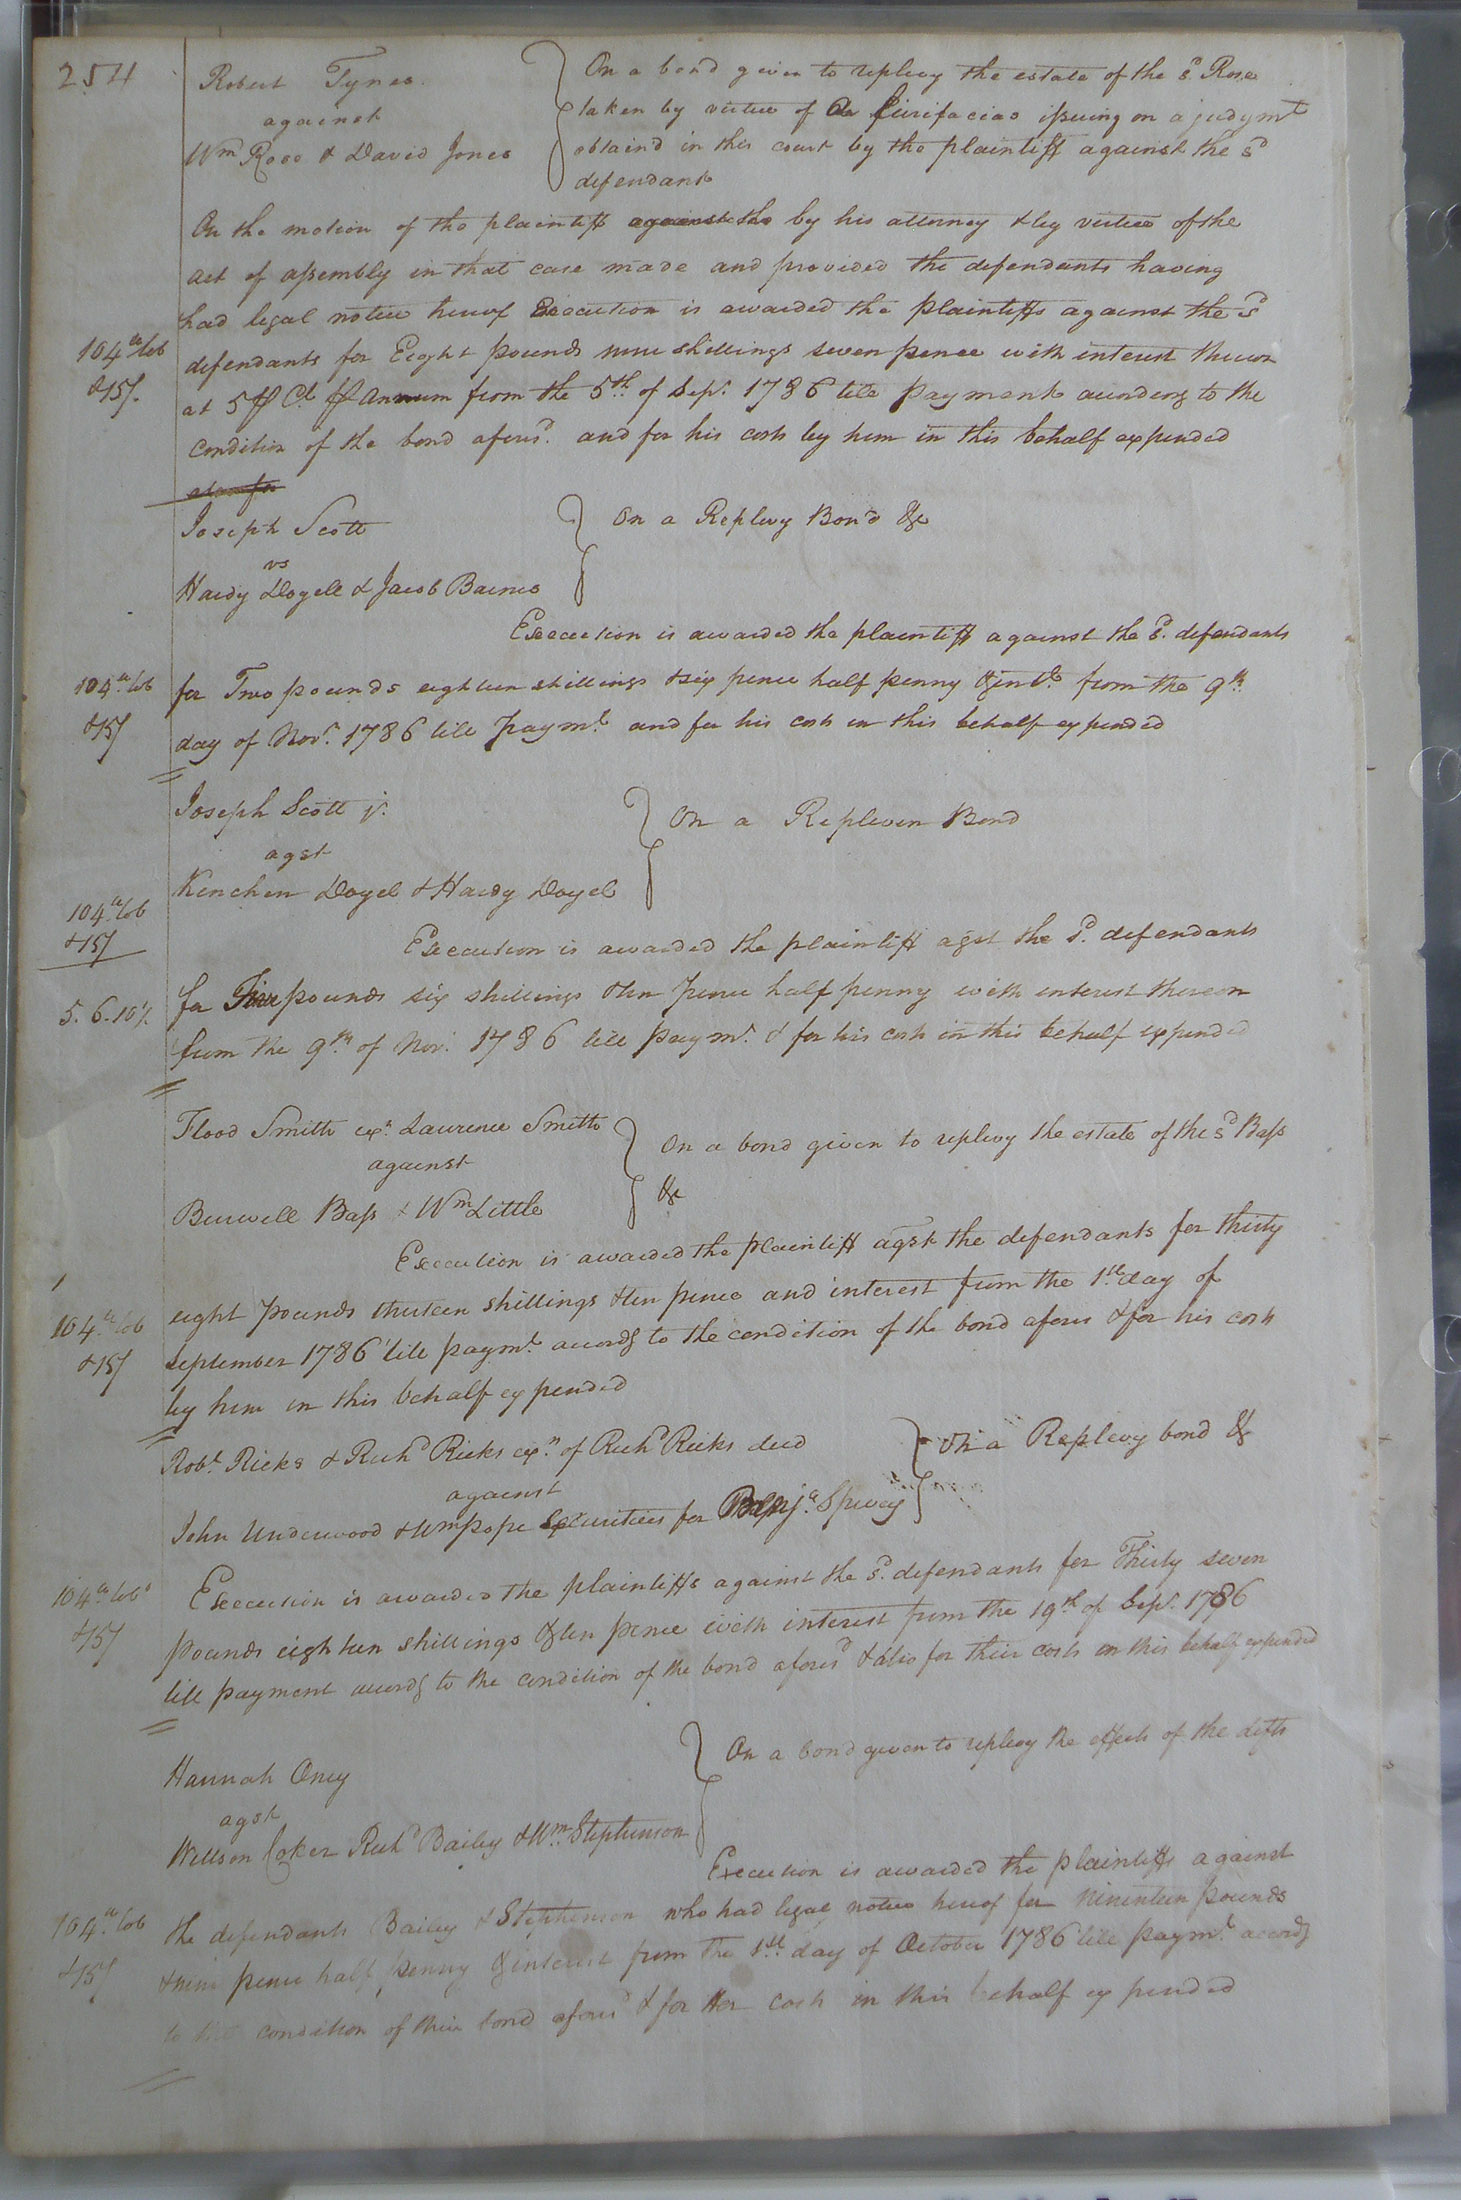 254
Robert Tynes
against
Wm Rose & David Jones
On a bond given to replevy the estate of the sd Rose
taken by virtue of a fierifacias issuing on a judgmt
obtaind in this court by the plaintiff against the sd
defendants
On the motion of the plaintiff against the by his attorney & by virtue of the
act of assembly in that case made and provided the defendants having
had legal notice hereof Execution is awarded the plaintiffs against the sd
104 lb tob
&15/.
defendants for Eight pounds nine shillings seven pence with interest thereon
at 5 P Ct P Annum from the 5th of Sepr. 1786 till payment according to the
condition of the bond aforesd. and for his costs by him in this behalf expended
Joseph Scott
vs
Hardy Doyell & Jacob Barnes
On a Replevy Bond &c
Execution is awarded the plaintiff against the sd. defendants
104 lb tob
&15/
for Two pounds eighteen shillings & six pence half penny & intt. from the 9th
day of Novr. 1786 till paymt. and for his costs in this behalf expended
Joseph Scott jr.
agst
Kenchen Doyel & Hardy Doyel
On a Replevin Bond
104 lb tob
&15/
Execution is awarded the plaintiff agst the sd. defendants
5.6.10½
for Five pounds six shillings & ten pence half penny with interest thereon
from the 9th of Nov. 1786 till paymt. & for his costs in this behalf expended
Flood Smith exr. Laurence Smith
against
Burwell Bass & Wm Little
On a bond given to replevy the estate of the sd Bass
&c
Execution is awarded the plaintiff agst the defendants for thirty
104 lb tob
&15/
eight pounds thirteen shillings & ten pence and interest from the 1st day of
September 1786 till paymt. accordg to the condition of the bond afores & for his costs
by him in this behalf expended
Robt. Ricks & Richd Ricks exrs. of Richd Ricks decd
against
John Underwood & Wm Pope Securities for Benja. Spivey
On a Replevy bond &c
104 lb tob
&15/
Execution is awarded the plaintiffs against the sd. defendants for Thirty seven
pounds eighteen shillings & ten pence with interest from the 19th of Sepr. 1786
till payment accordg to the condition of the bond aforesd & also for their costs in this behalf expended
Hannah Oney
agst
Willson Coker Richd Bailey & Wm. Stephenson
On a bond given to replevy the effects of the defts
Execution is awarded the plaintiffs against
104 lb tob
&15/
the defendants Bailey & Stephenson who had legal notice hereof for Nineteen pounds
& nine pence half penny & interest from the 1st. day of October 1786 till paymt. accordg
to the condition of their bond aforesd & for Her costs in this behalf expended